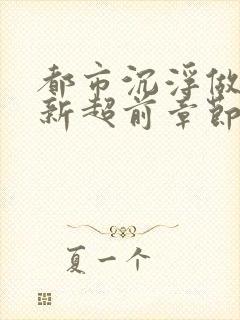 都市沉浮做
新超前章节
夏一个